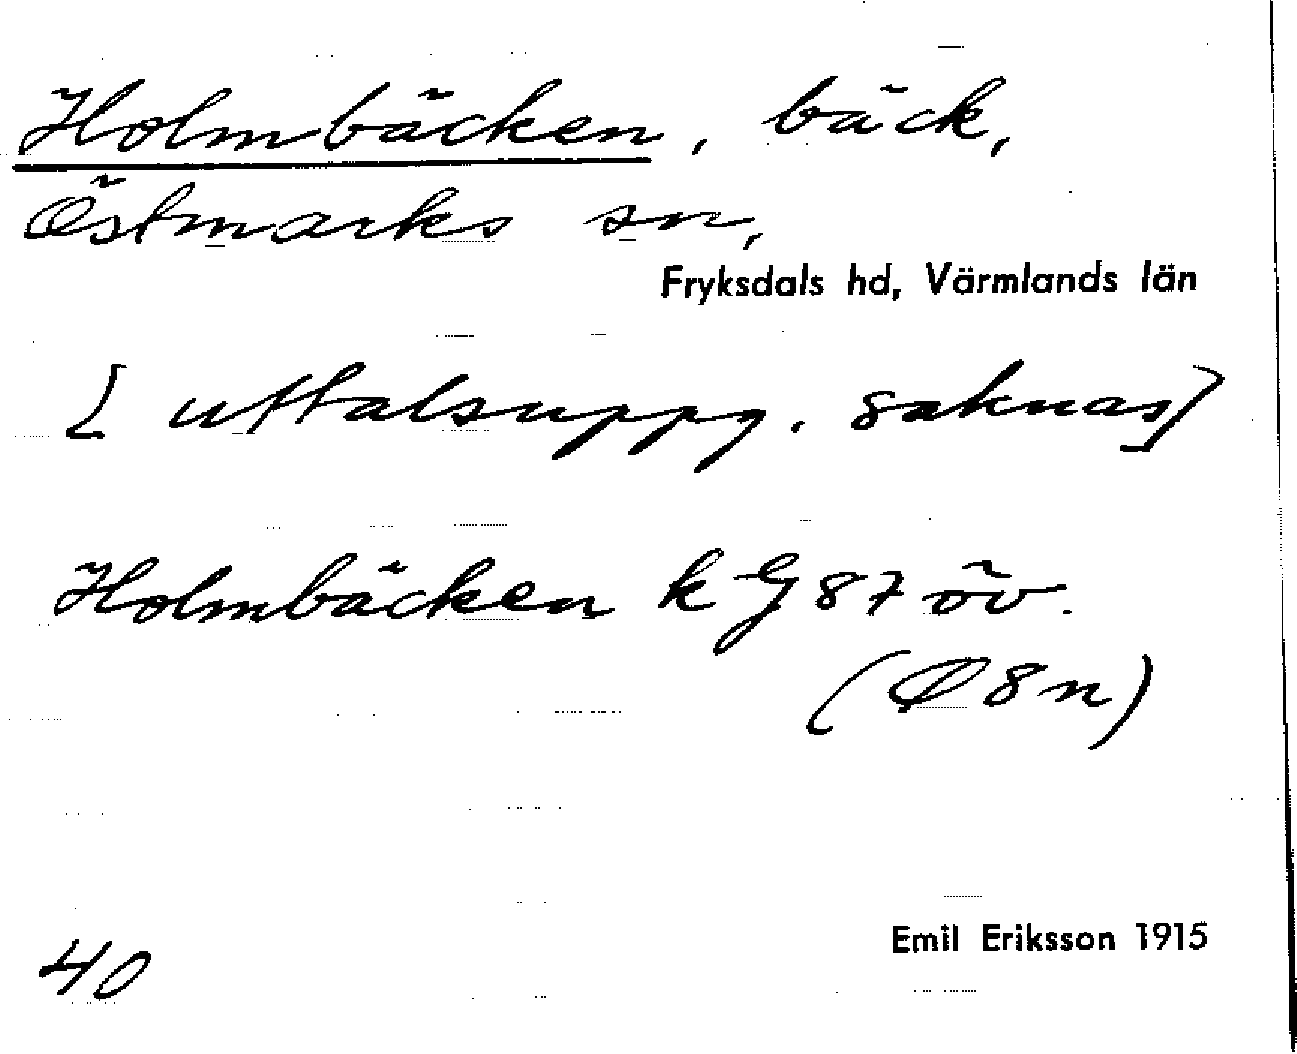 Holmbäcken, bäck,
Östmarks sn,
Fryksdals hd, Värmlands län
[uttalsuppg. saknas]
Holmbäcken k G 87 öv.
(Ö 8 n)
Emil Eriksson 1915
40